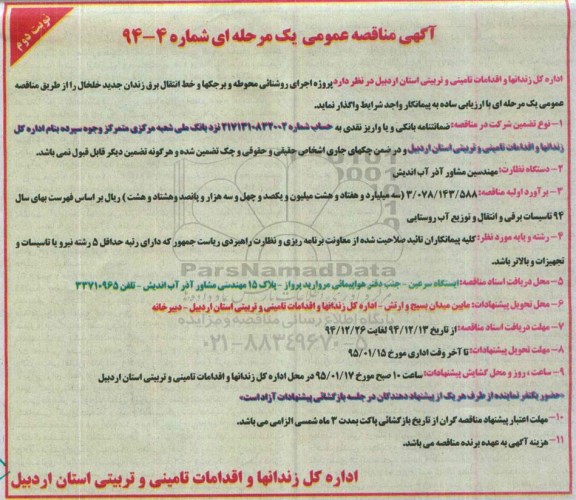 نوبت دوم
آگهی مناقصه عمومی یک مرحله ای شماره ۴-۹۴
اداره کل زندانها و اقدامات تامینی و تربیتی استان اردبیل در نظر دارد پروژه اجرای روشنائی محوطه و برجکها و خط انتقال برق زندان جدید خلخال را از طریق مناقصه
عمومی یک مرحله ای با ارزیابی ساده به پیمانکار واجد شرایط واگذار نماید.
۱- نوع تضمین شرکت در مناقصه: ضمانتنامه بانکی و یا واریز نقدی به حساب شماره ۲۱۷۱۳۱۰۸۳۲۰۰۲ نزد بانک ملی شعبه مرکزی متمرکز وجوه سپرده بنام اداره کل
زندانها و اقدامات تامینی و تربیتی استان اردبیل و در ضمن چکهای جاری اشخاص حقیقی و حقوقی و چک تضمین شده و هرگونه تضمین دیگر قابل قبول نمی باشد.
۲- دستگاه نظارت: مهندسین مشاور آذر آب اندیش
۳- برآورد اولیه مناقصه: ۳/۰۷۸/۱۴۳/۵۸۸ (سه میلیارد و هفتاد و هشت میلیون و یکصد و چهل و سه هزار و پانصد وهشتاد و هشت) ریال بر اساس فهرست بهای سال
۹۴ تاسیسات برقی و انتقال و توزیع آب روستایی
۴- رشته و پایه مورد نظر: کلیه پیمانکاران تائید صلاحیت شده از معاونت برنامه ریزی و نظارت راهبردی ریاست جمهور که دارای رتبه حداقل ۵ رشته نیرو یا تاسیسات و
تجهیزات و بالاتر باشد.
۵- محل دریافت اسناد مناقصه: ایستگاه سرعین - جنب دفتر هواپیمائی مروارید پرواز - پلاک ۱۵ مهندسی مشاور آذر آب اندیش - تلفن ۳۳۷۱۰۹۶۵
۶- محل تحویل پیشنهادات: مابین میدان بسیج و ارتش - اداره کل زندانها و اقدامات تامینی و تربیتی استان اردبیل - دبیرخانه
۷- مهلت دریافت اسناد مناقصه: از تاریخ ۹۴/۱۲/۱۳ لغایت ۹۴/۱۲/۲۶
۸- مهلت تحویل پیشنهادات: تا آخر وقت اداری مورخ ۹۵/۰۱/۱۵
۹- ساعت، روز و محل گشایش پیشنهادات: ساعت ۱۰ صبح مورخ ۹۵/۰۱/۱۷ در محل اداره کل زندانها و اقدامات تامینی و تربیتی استان اردبیل
«حضور یکنفر نماینده از طرف هر یک از پیشنهاد دهندگان در جلسه بازگشائی پیشنهادات آزاد است»
۱۰- مهلت اعتبار پیشنهاد مناقصه گران از تاریخ بازگشائی پاکت بمدت ۳ ماه شمسی الزامی می باشد.
۱۱- هزینه آگهی به عهده برنده مناقصه می باشد.
اداره کل زندانها و اقدامات تامینی و تربیتی استان اردبیل
ParsNamadData
پایگاه اطلاع رسانی مناقصه و مزایده
۰۲۱-۸۸۳۴۹۶۷۰-۵